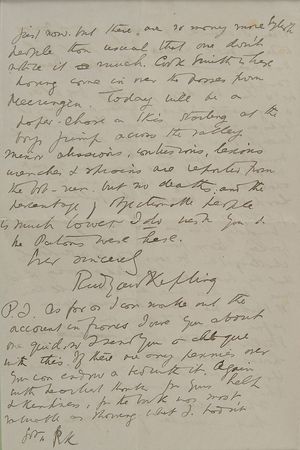 just now. but there are so many more English
people than usual that one don't
notice it so much. Cork Smith is here
having come in over the passes from
Meiringen. Today will be a
paper-chase on Skis starting at the
big jump across the valley
minor abrasions, contusions, lesions
wrenches & sprains are reported from
the bob-run. but no deaths. and the
percentage of objectionable people
is much lower. I do wish you &
the Patons were here.
Ever sincerely
Rudyard Kipling
P.S. As far as I can make out the
account in francs I owe you about
one quid so I send you a cheque
with this. If there are any pennies over
you can endow a bed with it. Again
with heartiest thanks for your help
& kindness, for the book was most
valuable as showing what I hadn't
got. RK